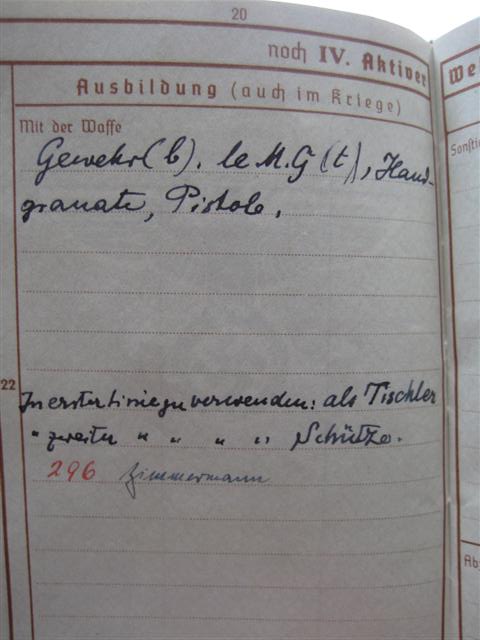 20
noch IV. Aktiver
We
Ausbildung (auch im Kriege)
Mit der Waffe
Sonsti
Gewehr (b), le M.G (t), Hand-
granate, Pistole,
22
In erster Linie zu verwenden: als Tischler
" zweiter " " " " Schütze.
296 Zimmermann
Ab